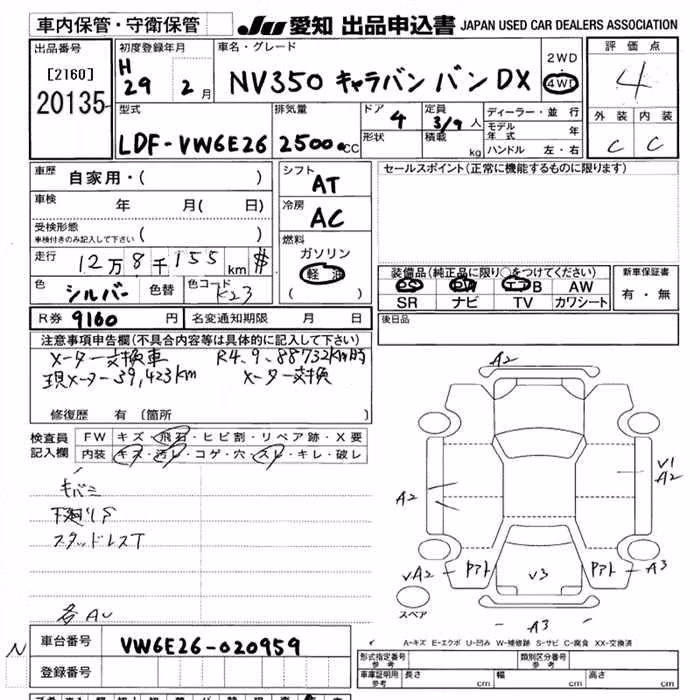 車内保管・守衛保管
JU 愛知 出品申込書 JAPAN USED CAR DEALERS ASSOCIATION
出品番号
[2160]
20135
初度登録年月
H
29 年 2 月
車名・グレード
NV350 キャラバン バン DX
2WD
・
4WD
評価点
4
外装 内装
C C
型式
LDF-VW6E26
排気量
2500 CC
ドア 4
形状
定員 3/9 人
積載 kg
ディーラー・並行
モデル年式 年
ハンドル 左・右
車歴 自家用・( )
車検 年 月( 日)
受検形態
車検付きのみ記入して下さい ( )
走行 12万8千155km $
色 シルバー 色替 色コード K23
シフト
AT
冷房
AC
燃料
ガソリン
軽油
( )
セールスポイント(正常に機能するものに限ります)
装備品(純正品に限り○をつけてください)
PS PW エアB AW
SR ナビ TV カワシート
新車保証書
有・無
R券 9160 円 名変通知期限 月 日
後日品
注意事項申告欄(不具合内容等は具体的に記入して下さい)
メーター交換車 R4.9.88732km時
現メーター39,423km メーター交換
修復歴 有(箇所 )
検査員記入欄
FW キズ・飛石・ヒビ割・リペア跡・X要
内装 キズ・汚レ・コゲ・穴・スレ・キレ・破レ
キバミ
下廻りS
スタッドレスT
各AU
A2
V1
A2
A2
VA2
アト
V3
アト
A3
スペア
A3
A-キズ E-エクボ U-凹み W-補修跡 S-サビ C-腐食 XX-交換済
N
車台番号 VW6E26-020959
登録番号
形式指定番号
参考
類別区分番号
参考
車庫証明用
参考
長さ cm 幅 cm 高さ cm